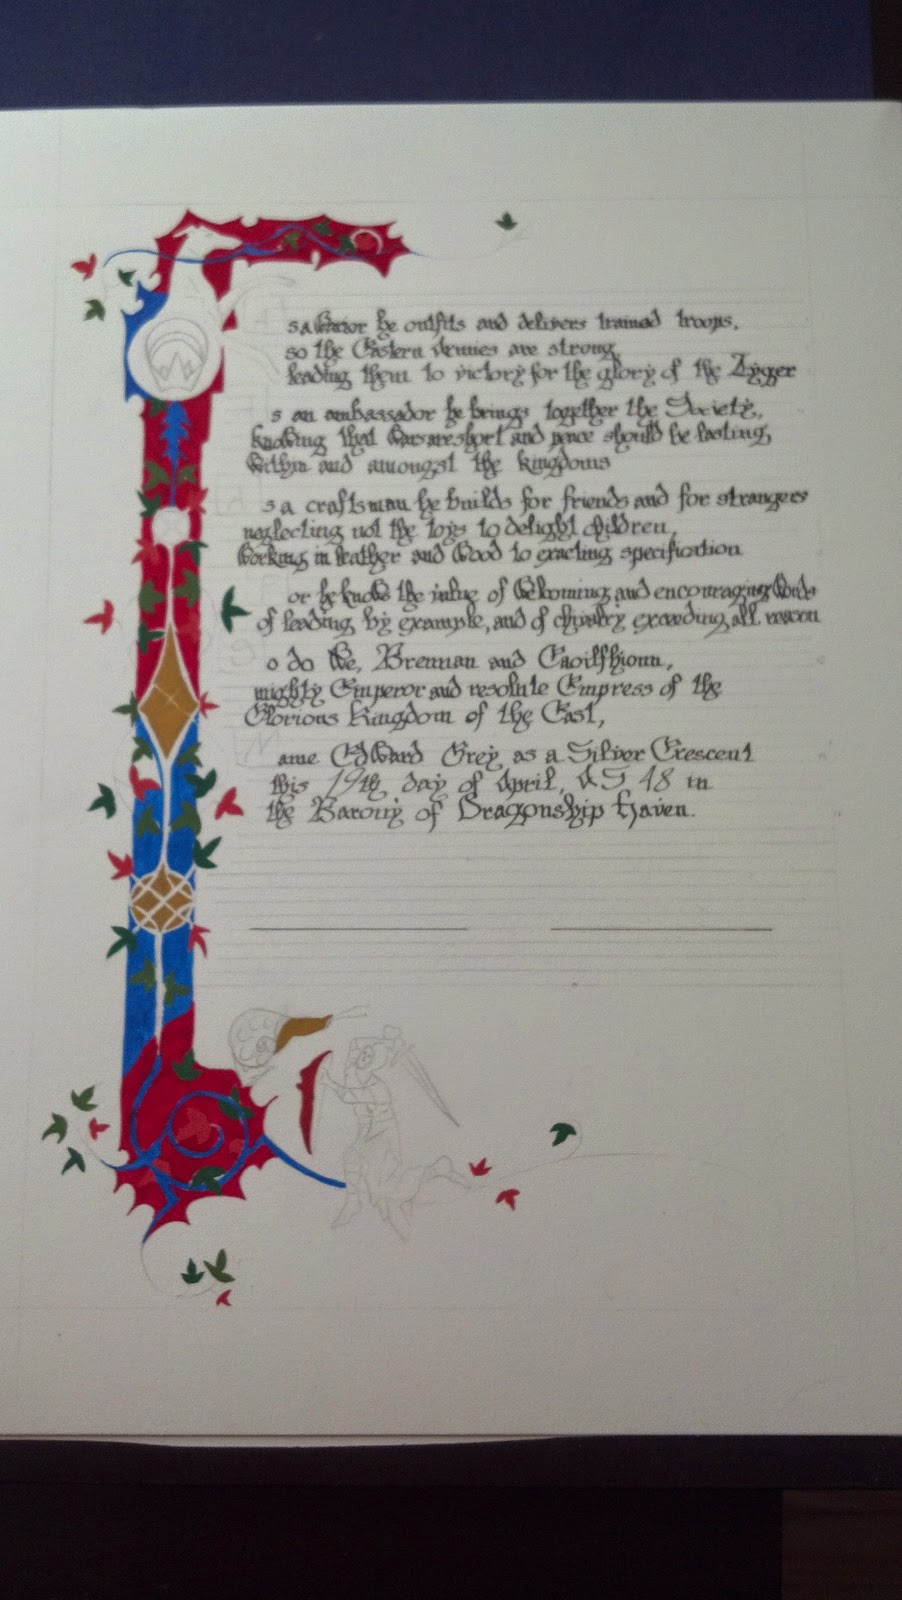 s a Warior he outfits and delivers trained troops,
so the Eastern Armies are strong,
leading them to victory for the glory of the Tyger
s an ambassador he brings together the Society,
knowing that Wars are short and peace should be lasting,
Within and amongst the kingdoms
s a craftsman he builds for friends and for strangers
neglecting not the toys to delight children,
Working in leather and Wood to exacting specification
or he knows the value of Welcoming and encouraging Words
of leading by example, and of chivalry exceeding all reason
o do We, Brennan and Caoilfhionn,
mighty Emperor and resolute Empress of the
Glorious Kingdom of the East,
ame Edward Grey as a Silver Crescent
this 19th day of April, AS 48 in
the Barony of Dragonship Haven.